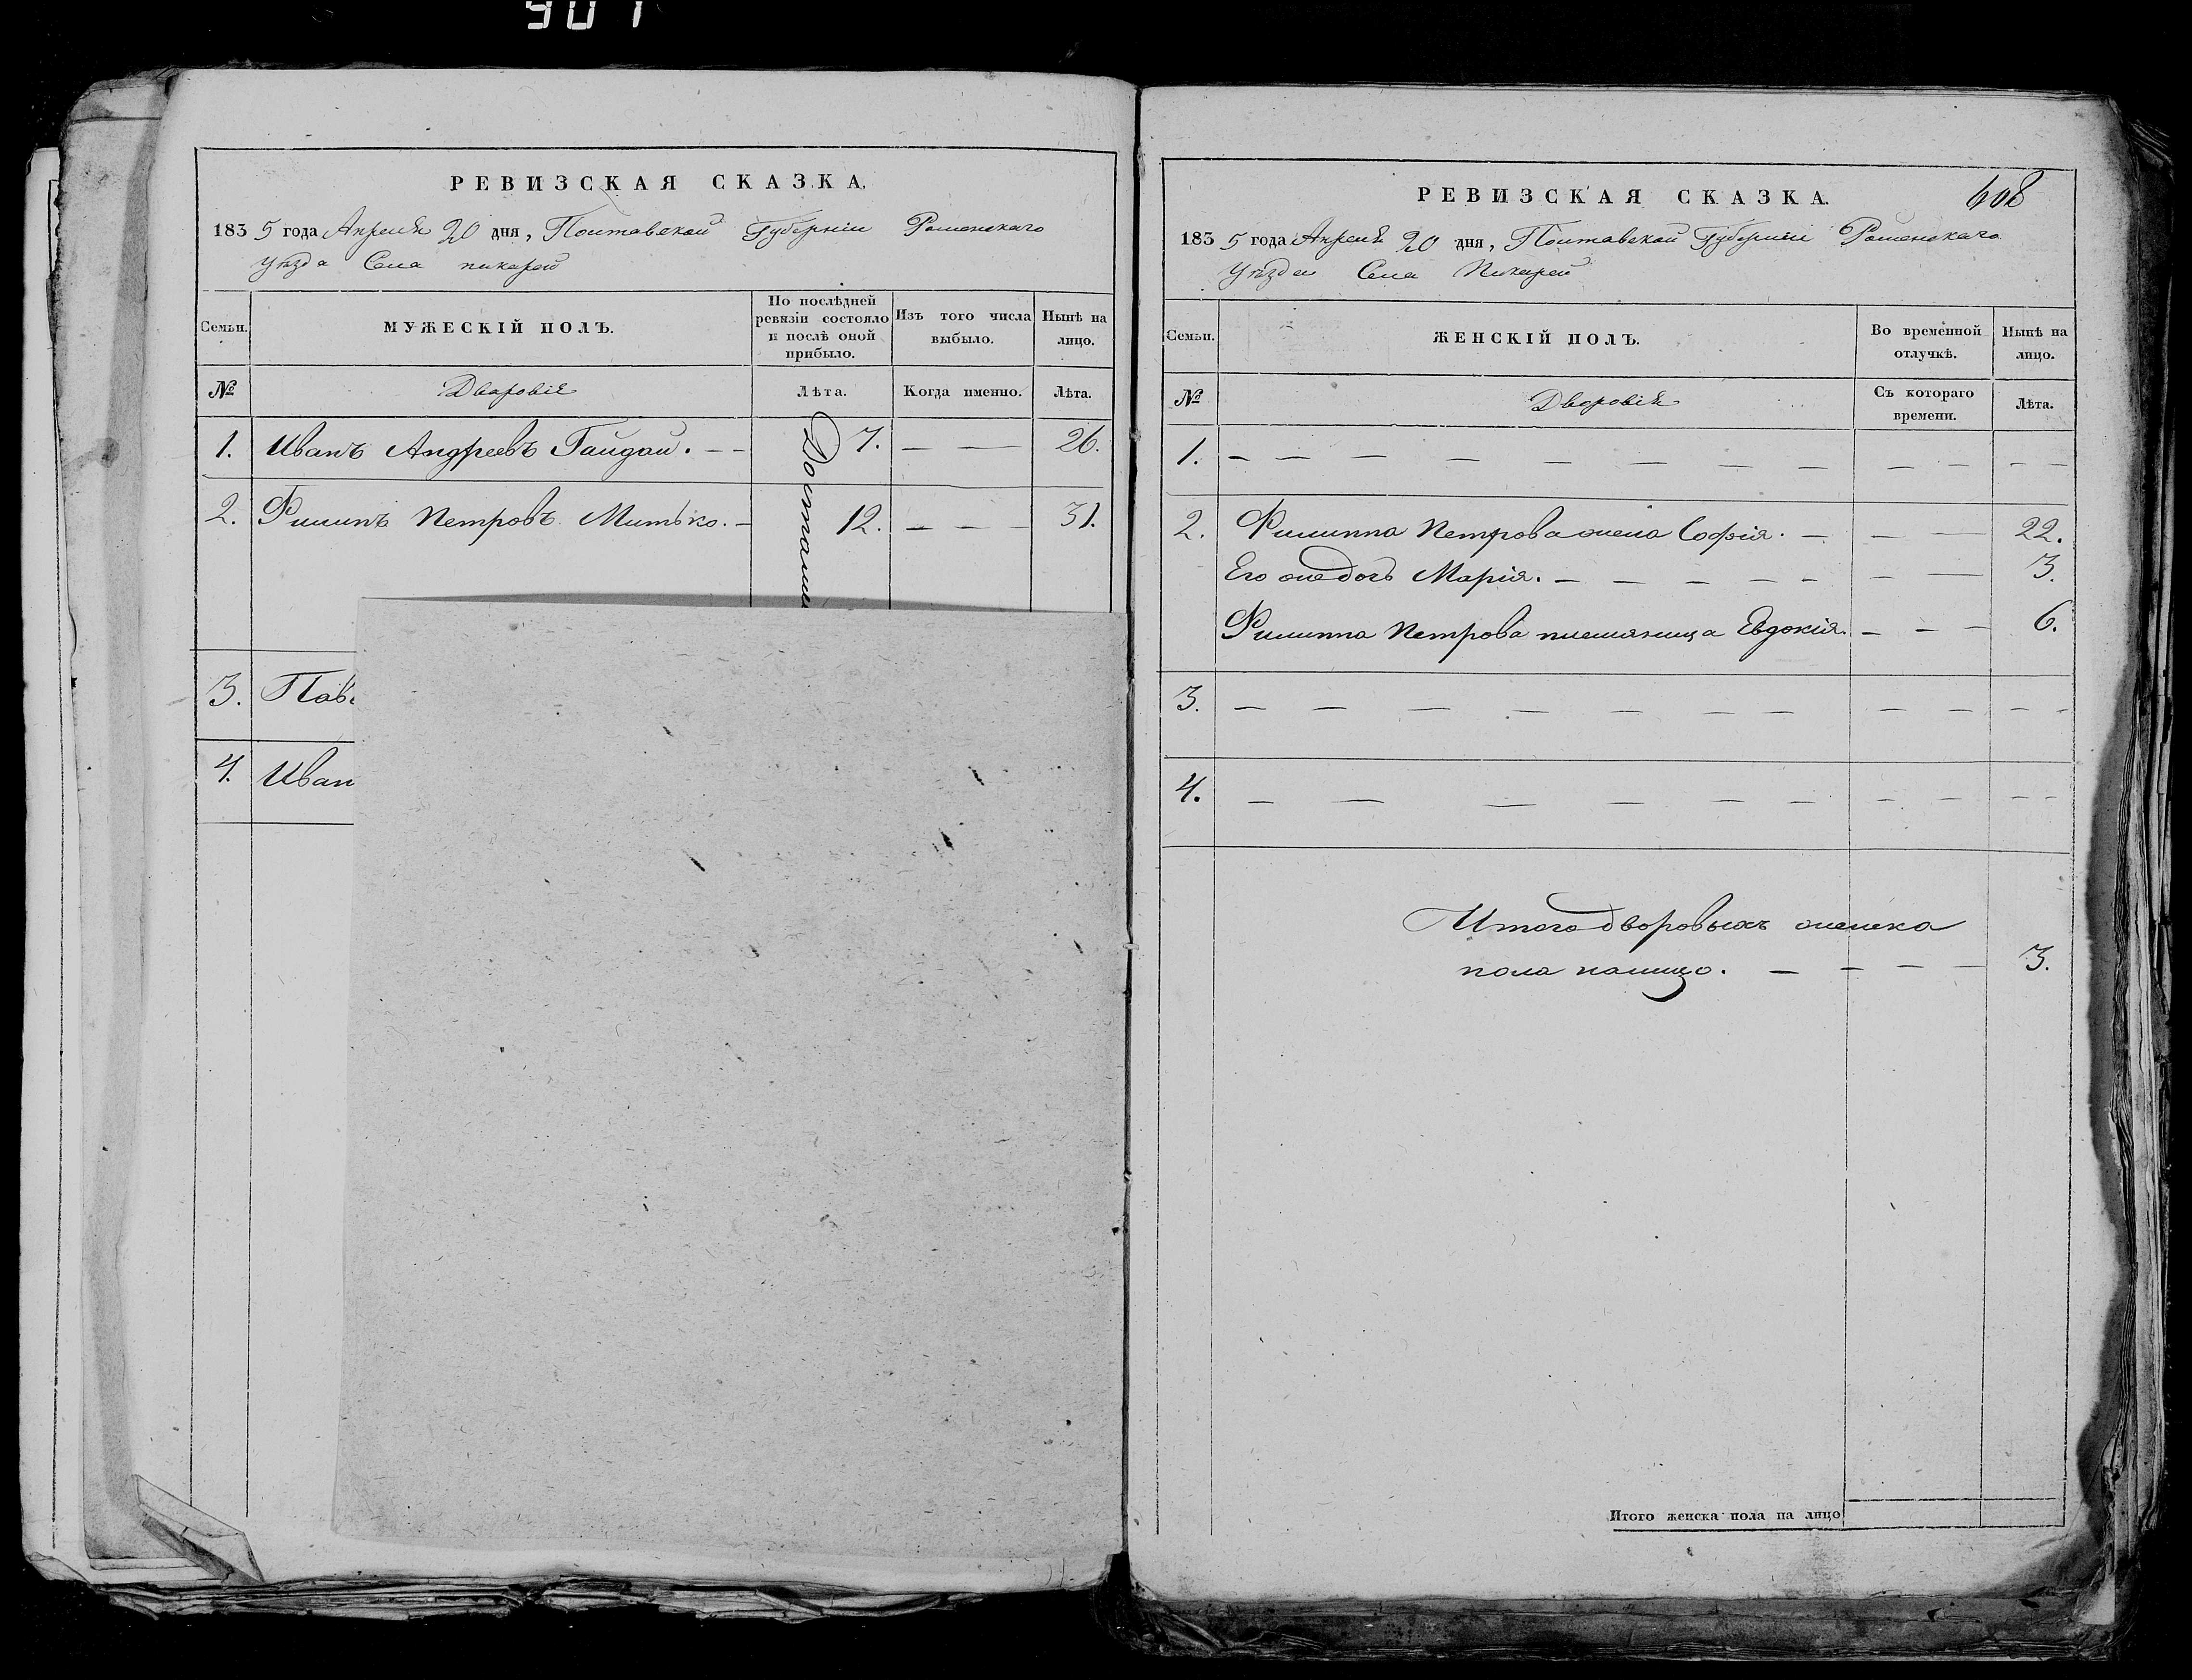 907
РЕВИЗСКАЯ СКАЗКА.
1835 года Апреля 20 дня, Полтавской Губерніи Роменского
уѣзда Села пикарей
Семьи.
МУЖЕСКІЙ ПОЛЪ.
По послѣдней ревизіи состояло и послѣ оной прибыло.
Изъ того числа выбыло.
Нынѣ на лицо.
№
Дворовіе
Лѣта.
Когда именно.
Лѣта.
1. Иванъ Андреевъ Гайдай. - - 7. — — 26.
2. Филипъ Петровъ Митько. - 12. — — — 31.
3. Пав
4. Иван
РЕВИЗСКАЯ СКАЗКА.
608
1835 года Апреля 20 дня, Полтавской Губерніи Роменскаго
Уѣзда Села Пикарей
Семьи.
ЖЕНСКІЙ ПОЛЪ.
Во временной отлучкѣ.
Нынѣ на лицо.
№
Дворовіе
Съ котораго времени.
Лѣта.
1. — — — — — — — — — — — —
2. Филиппа Петрова жена Софія. — — — 22.
Его же дочь Марія. — — — — — — — — 3.
Филиппа Петрова племяница Евдокія. — — — 6.
3. — — — — — — — — — — —
4. — — — — — — — — — —
Итого дворовыхъ женска
пола налицо. — — — — 3.
Итого женска пола на лицо